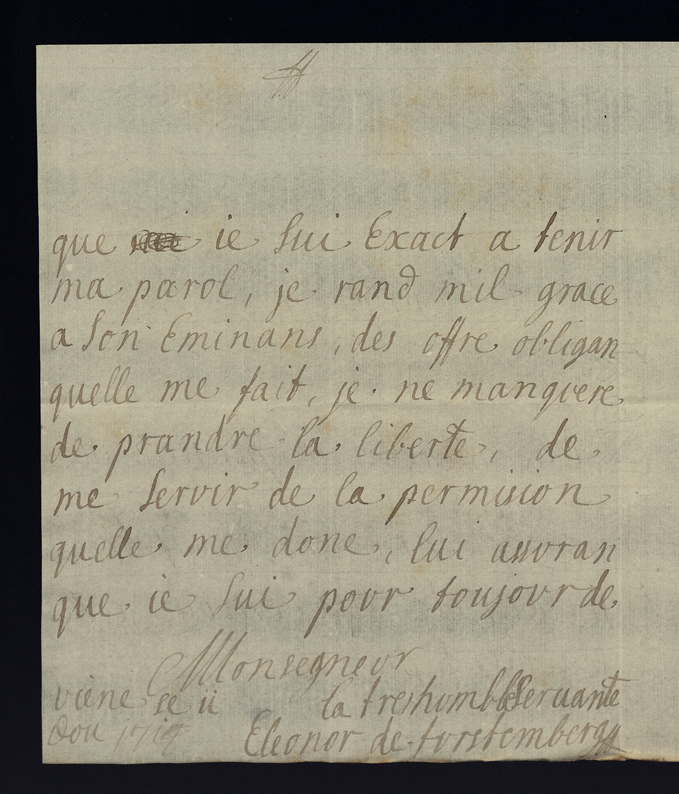 que ie sui Exact a tenir
ma parol, je rand mil grace
a son Eminans, des offre obligan
quelle me fait, je ne manquere
de prandre la liberte, de
me servir de la permision
quelle me done, lui assuran
que ie sui pour toujour de
Monsegneur
viene se ii la treshumble servante
Dou 1714 Eleonor de furstemberg